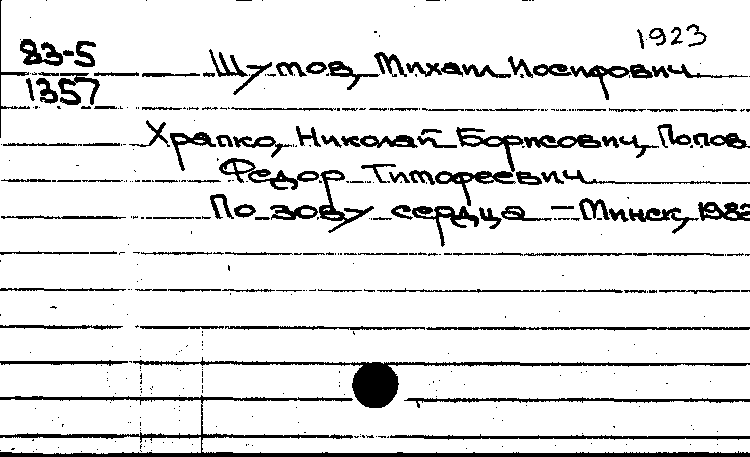 1923
83-5
1357
Шутов, Михаил Иосифович
Храпко, Николай Борисович, Попов
Федор Тимофеевич
По зову сердца – Минск, 1982